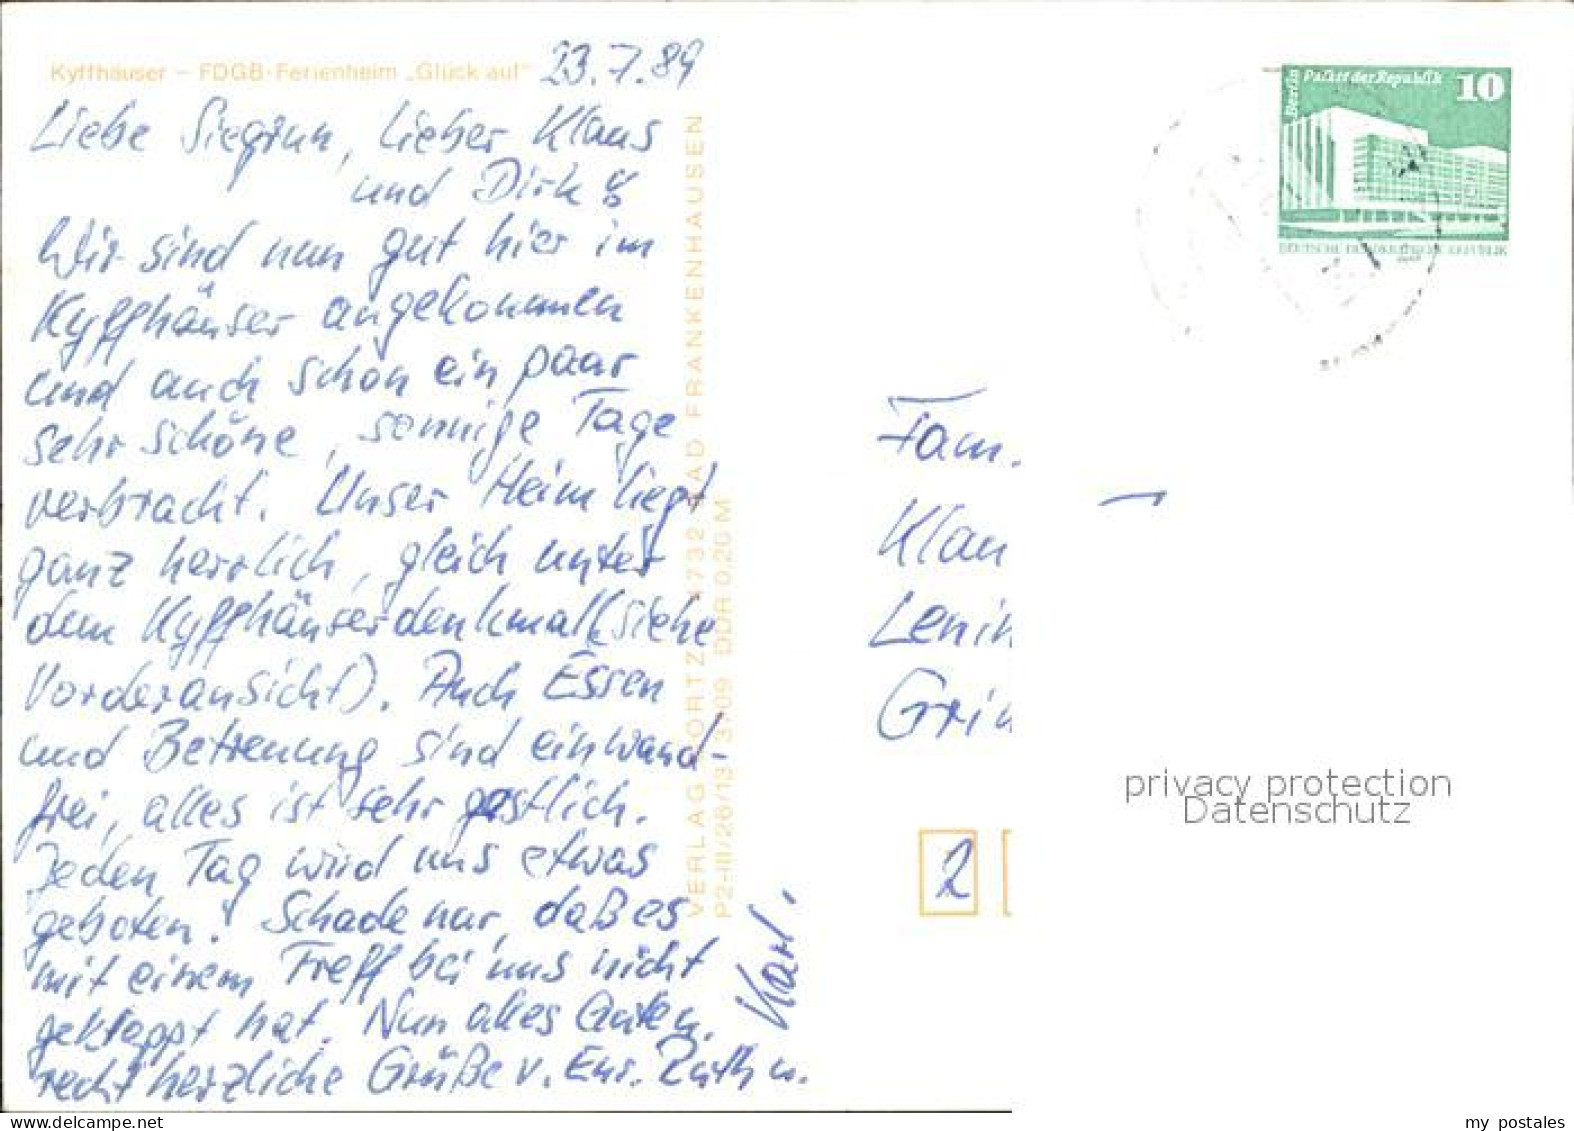 Kyffhäuser – FDGB-Ferienheim „Glück auf“
23.7.89
Liebe Siegrun, lieber Klaus
und Dirk!
Wir sind nun gut hier im
Kyffhäuser angekommen
und auch schon ein paar
sehr schöne, sonnige Tage
verbracht. Unser Heim liegt
ganz herrlich, gleich unter
dem Kyffhäuserdenkmal (siehe
Vorderansicht). Auch Essen
und Betreuung sind einwand-
frei, alles ist sehr gastlich.
Jeden Tag wird uns etwas
geboten! Schade nur, daß es
mit einem Treff bei uns nicht
geklappt hat. Nun alles Gute u.
recht herzliche Grüße v. Eur. Ruth u.
Karl.
VERLAG 4732 BAD FRANKENHAUSEN
P2-III/26/13 DDR 0,20 M
Berlin Palast der Republik 10
DEUTSCHE DEMOKRATISCHE REPUBLIK
Fam.
Klau
Lenin
Grim
2
privacy protection
Datenschutz
my postales